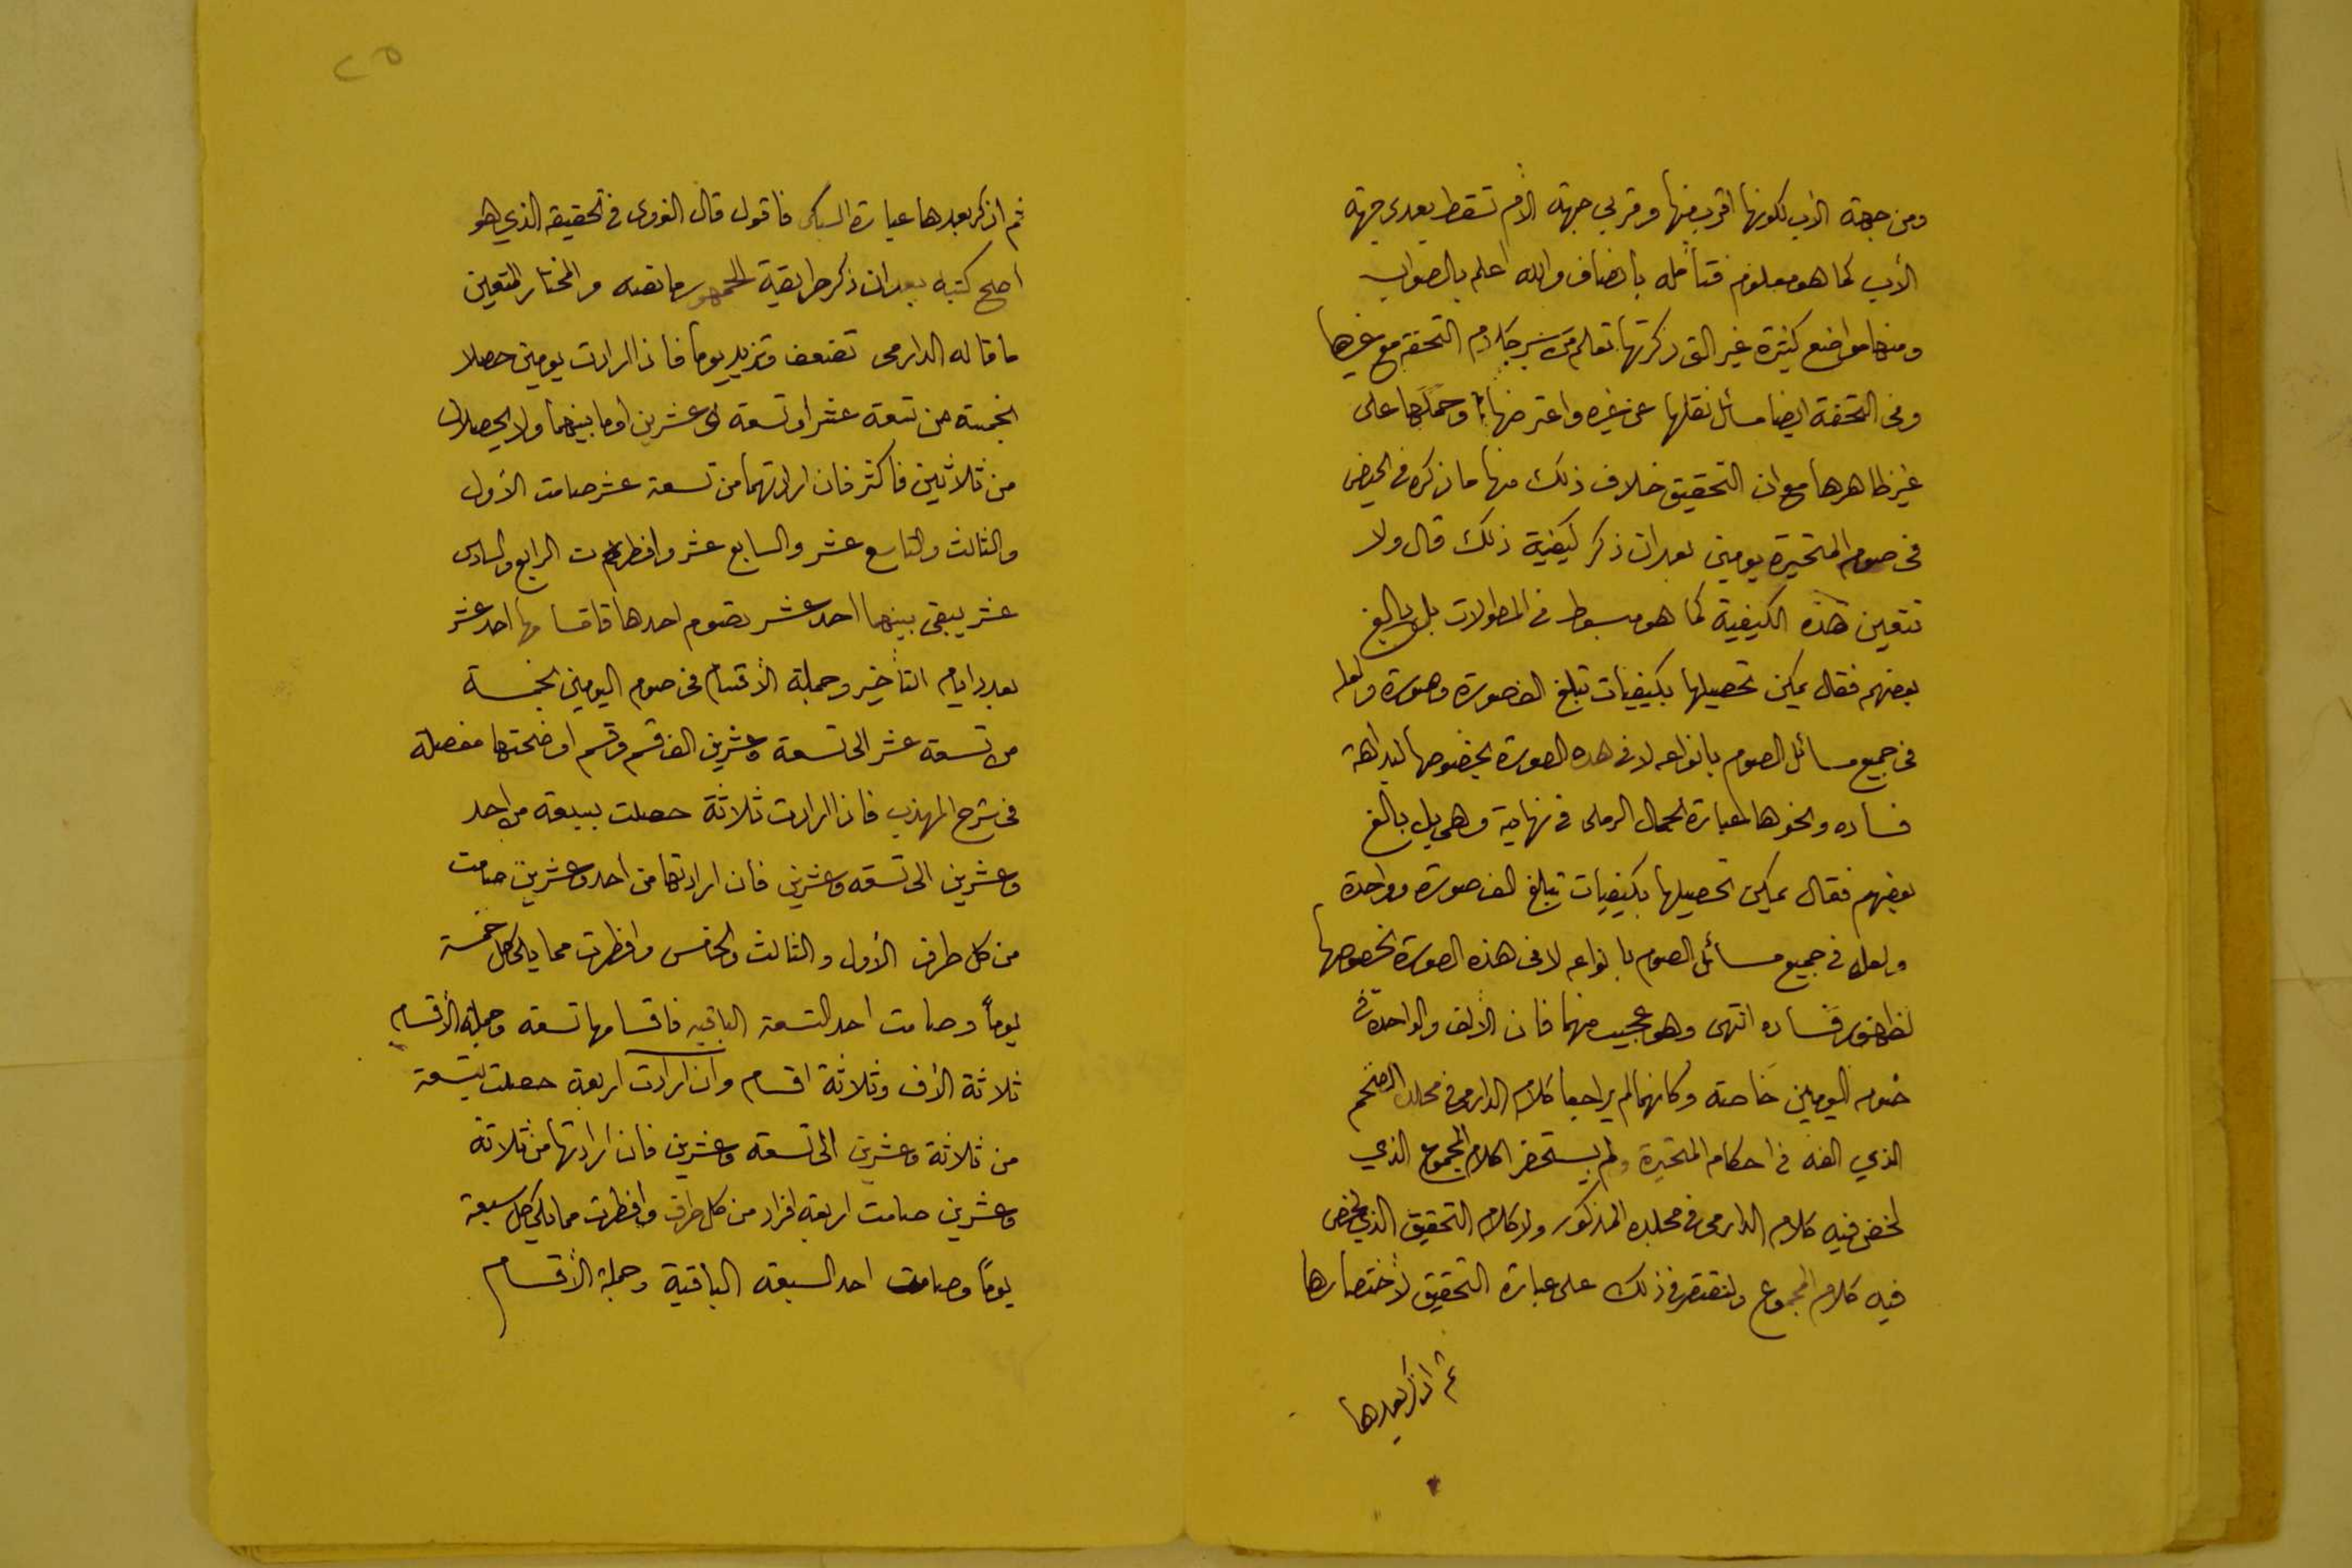 ومن جهة الأب لكونها اقرب منها وقربى جهة الأم تسقط بعدى جهة
الأب كما هو معلوم فتأمله بانصاف والله اعلم بالصواب
ومنها مواضع كثيرة غير التى ذكرتها تعلم من سبر كلام التحفة مع غيرها
وفى التحفة ايضا مسائل نقلها عن غيره واعترضها وحملها على
غير ظاهرها مع ان التحقيق خلاف ذلك منها ما ذكره فى الحيض
فى صوم المتحيرة يومين بعد ان ذكر كيفية ذلك قال ولا
تتعين هذه الكيفية كما هو مبسوط فى المطولات بل بالغ
بعضهم فقال يمكن تحصيلها بكيفيات تبلغ الف صورة وصورة ولعله
فى جميع مسائل الصوم بانواعه لا فى هذه الصورة بخصوصها لبداهة
فساده ونحوها عبارة الجمال الرملى فى نهايته وهى بل بالغ
بعضهم فقال يمكن تحصيلها بكيفيات تبلغ الف صورة وواحدة
ولعله فى جميع مسائل الصوم بانواعه لا فى هذه الصورة بخصوصها
لظهور فساده انتهى وهو عجيب منهما فان الألف والواحدة فى
صوم اليومين خاصة وكانهما لم يراجعا كلام الدارمى فى مجلده الضخم
الذي الفه فى احكام المتحيرة ولم يستحضرا كلام المجموع الذي
لخص فيه كلام الدارمى فى مجلده المذكور ولا كلام التحقيق الذي لخص
فيه كلام المجموع ولنقتصر فى ذلك على عبارة التحقيق لأختصارها
ثم اذكر بعدها
٢٥
ثم اذكر بعدها عبارة السبكى فاقول قال النووى فى تحقيقه الذي هو
اصح كتبه بعد ان ذكر طريقة الجمهور ما نصه والمختار المتعين
ما قاله الدارمى تضعف وتزيد يوما فاذا ارادت يومين حصلا
بخمسة من تسعة عشر او تسعة وعشرين او ما بينهما ولا يحصلان
من ثلاثين فاكثر فان ارادتهما من تسعة عشر صامت الأول
والثالث والتاسع عشر والسابع عشر وافطرت الرابع والسادس
عشر يبقى بينهما احد عشر تصوم احدها فاقسامها احد عشر
بعدد ايام التأخير وجملة الأقسام فى صوم اليومين بخمسة
من تسعة عشر الى تسعة وعشرين الف قسم وقسم اوضحتها مفصلة
فى شرح المهذب فاذا ارادت ثلاثة حصلت بسبعة من احد
وعشرين الى تسعة وعشرين فان ارادتها من احد وعشرين صامت
من كل طرف الأول والثالث والخامس وافطرت مما يلى كل خمسة
يوماً وصامت احد التسعة الباقية فاقسامها تسعة وجملة الأقسام
ثلاثة الأف وثلاثة اقسام وان ارادت اربعة حصلت بتسعة
من ثلاثة وعشرين الى تسعة وعشرين فان ارادتها من ثلاثة
وعشرين صامت اربعة افراد من كل طرف وافطرت مما يلى كل سبعة
يوماً وصامت احد السبعة الباقية وجملة الأقسام